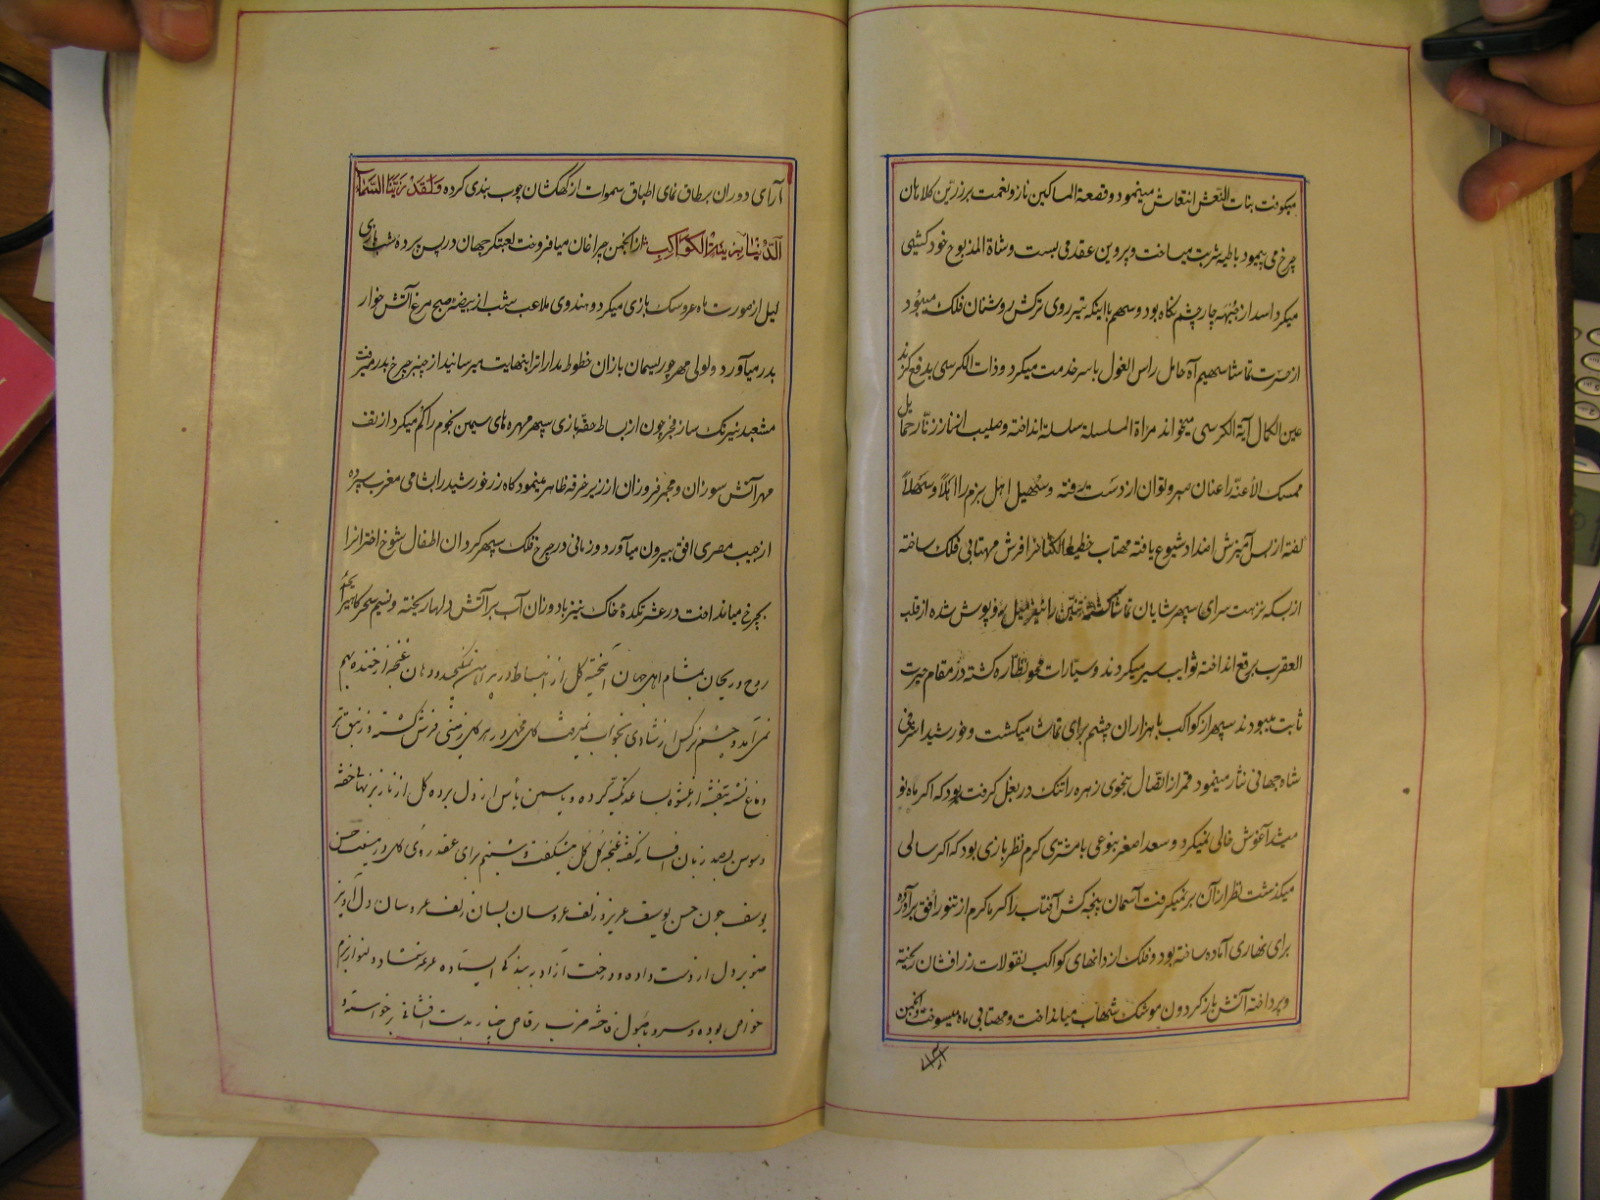 میکوفت بنات النعش انتعاش مینمود و قصعة المساکین ناز و نعمت بر زرین کلاهان
چرخ می پیمود باطیه شربت میساخت و پروین عقد می بست و شاة المذبوح خود کشی
میکرد اسد از جبهه چار چشم نگاه بود و سهم با اینکه تیر روی ترکش روشنان فلک میبود
از حسرت تماشا سهیم آه حامل راس الغول با سر خدمت میکرد و ذات الکرسی بدفع گزند
عین الکمال آیة الکرسی میخواند مراة المسلسله سلسله انداخته و صلیب از زنار حمایل
ممسک الاعنه را عنان صبر و توان از دست رفته و سهیل اهل بزم را اهلاً و سهلاً
گفته از بس آمیزش امتداد شیوع یافته مهتاب خیط الکتان را فرش مهتابی فلک ساخته
از بسکه نزهت سرای سپهر شایان تماشا گشته تنین را پوش شده از قلب
العقرب برقع انداخته ثوابت سیر میکردند و سیارات محو نظاره گشته در مقام حیرت
ثابت میبودند سپهر از کواکب با هزاران چشم برای تماشا میگشت و خورشید اشرفی
شاه جهانی نثار مینمود قمر از اتصال بنحوی زهره را تنگ در بغل گرفته بود که اگر ماه نو
میشد آغوش خالی نمیکرد و سعد اصغر بنوعی با مشتری گرم نظر بازی بود که اگر سالی
میگذشت نظر از آن بر نمیگرفت آسمان پنجه کش آفتاب را گرما گرم از تنور افق برآورده
برای نهاری آماده ساخته بود و فلک از دانهای کواکب بقولات زر افشان ریخته
و پرداخته آتش باز گردون موشک شهاب میانداخت و مهتابی ماه میسوخت و انجمن
آرای دوران بر طاق نمای اطباق سموات از کهکشان چوب بندی کرده وَلَقَدْ زَيَّنَّا السَّمَآءَ
الدُّنْیَا بِزِینَةِ الْکَوَاکِبِ از انجمن چراغان میافروخت لعبتگر جهان در پس پرده شب بازی
لیل از صورت ماه عروسک بازی میکرد و هندوی ملاعب شب از بیضه صبح مرغ آتش خوار
بدر میآورد و لولی مهر چو ریسمان بازان خطوط مدارات را بنهایت میرسانید از چنبر چرخ بدر میرفت
مشعبد نیرنگ ساز فجر چون از بساط حقه بازی سپهر مهره های سیمین نجوم را گم میکرد از تف
مهر آتش سوزان و مجمر فروزان از زیر خرقه ظاهر مینمود گاه زر خورشید را بشامی مغرب سپرده
از جیب مصری افق بیرون میآورد و زمانی در چرخ فلک سپهر گردان اطفال شوخ اختر را
بچرخ میانداخت در عشرتکدهٔ خاک نیز باد وزان آب بر آتش دلها ریخته و نسیم سحرگاهی
روح و ریحان بمشام اهل جهان آمیخته گل از انبساط در پیراهن نمیگنجید و دهان غنچه از خنده بهم
نمی آمد و چشم نرگس از شادی بخواب نمیرفت گل مخمل در هر گل زمینی فرش گشته و زنبق تر
دماغ نشسته بنفشه از عشوه بساعد تکیه کرده و یاسمن یأس از دل برده گل از ناز بر نهالی خفته
و سوسن بصد زبان افسانه گفته غنچه گل گل میشکفت و شبنم برای عقد روی گل در میسفت حسن
یوسف چون حسن یوسف عزیز و زلف عروسان بسان زلف عروسان دل آویز
صنوبر دل از دست داده و درخت آزاد به بندگی ایستاده عرعر شمشاد و صنوبر بزم
خواص بوده و سرو با اصول فاخته ضرب رقاص چنار بدست افشانی برخواسته و